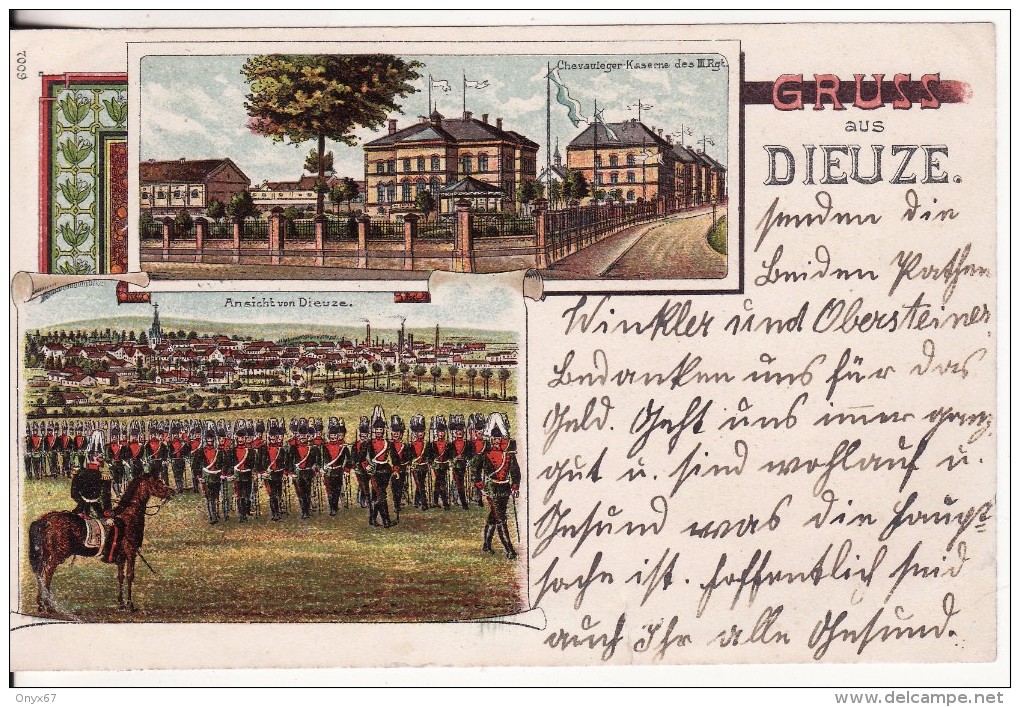 6002
Chevauleger-Kaserne des III. Rgt.
GRUSS
aus
DIEUZE.
Ansicht von Dieuze.
senden die
Beiden Pathen
Winkler und Obersteiner.
Bedanken uns für das
Geld. Geht uns imer ganz
gut u. sind wohlauf u.
Gesund was die Haupt-
sache ist. Hoffentlich seid
auch Ihr alle Gesund.
Onyx67
www.delcampe.net